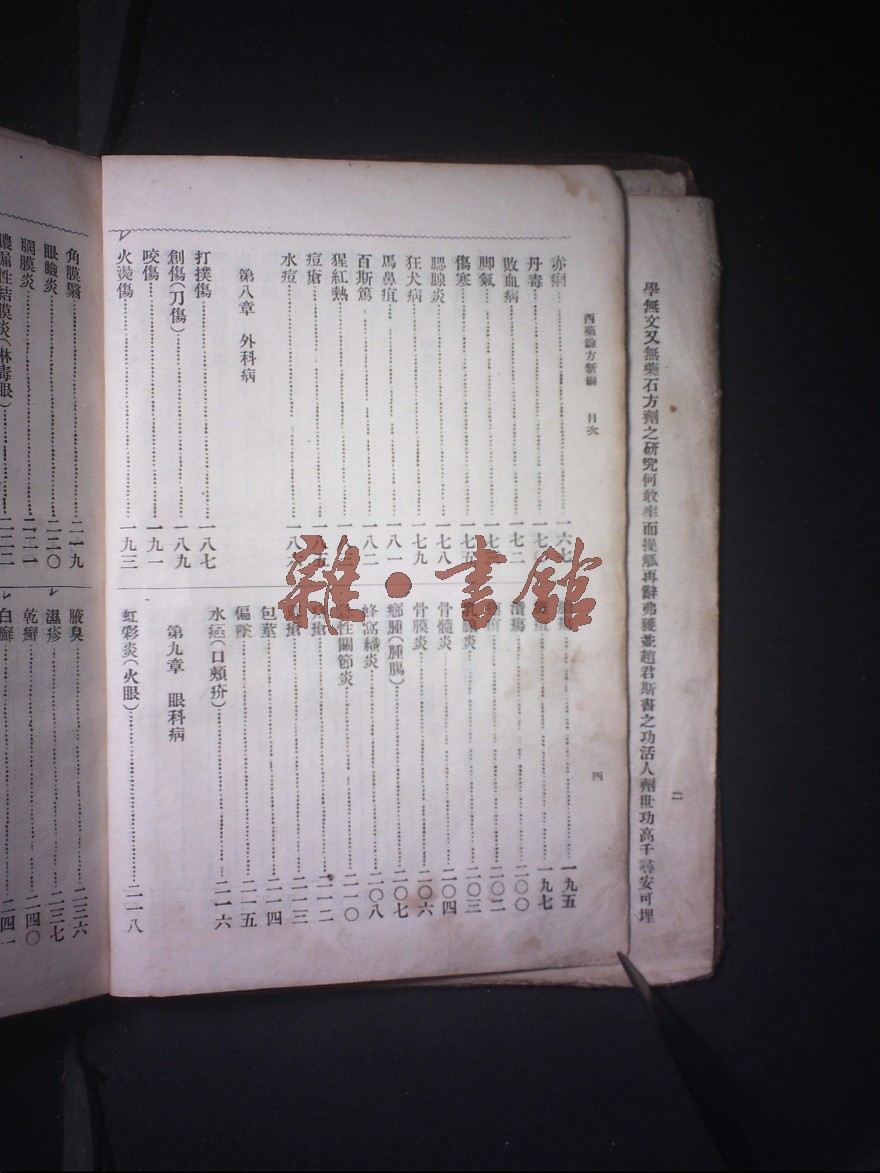 學無文又無藥石方劑之研究何敢率而操觚再辭弗獲並趙君斯書之功活人劑世功高千尋安可埋
二
西藥論方新編 目次
四
赤痢 一六七
丹毒
敗血病 一七二
脚氣
傷寒 一七五
腮腺炎 一七八
狂犬病 一七九
馬鼻疽 一八一
百斯篤 一八二
猩紅熱
痘瘡 一八五
水痘
第八章 外科病
打撲傷 一八七
創傷(刀傷) 一八九
咬傷 一九一
火燙傷 一九三
一九五
一九七
潰瘍 二〇〇
二〇二
二〇三
骨髓炎 二〇四
骨膜炎 二〇六
瘤腫(腫瘍) 二〇七
蜂窩織炎 二〇八
性關節炎 二一〇
瘡 二一二
瘡 二一三
包莖 二一四
偏墜 二一五
水癌(口頰疥) 二一六
第九章 眼科病
虹彩炎(火眼) 二一八
角膜翳 二一九
眼瞼炎 二二〇
網膜炎 二二一
膿漏性結膜炎(淋毒眼) 二二二
腋臭 二三六
濕疹 二三七
乾癬 二四〇
白癬 二四一
雜·書館